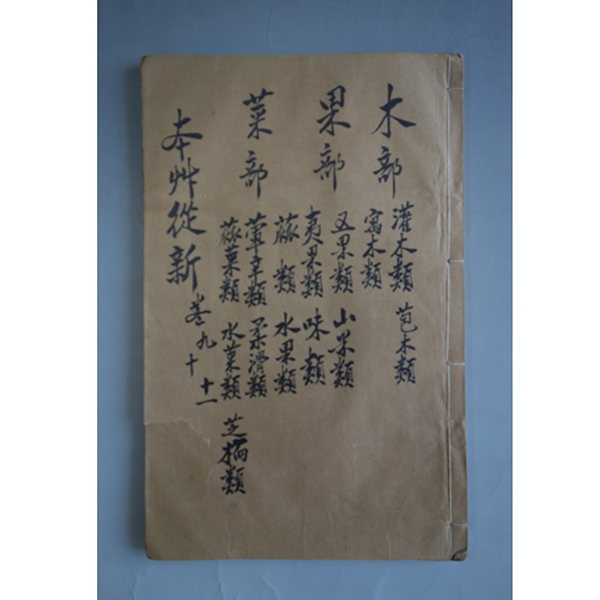 木部
灌木類 苞木類
寓木類
果部
五果類 山果類
夷果類 味類
蓏類 水果類
菜部
葷辛類 柔滑類
蓏菜類 水菜類 芝栭類
本艸從新 卷九 十 十一